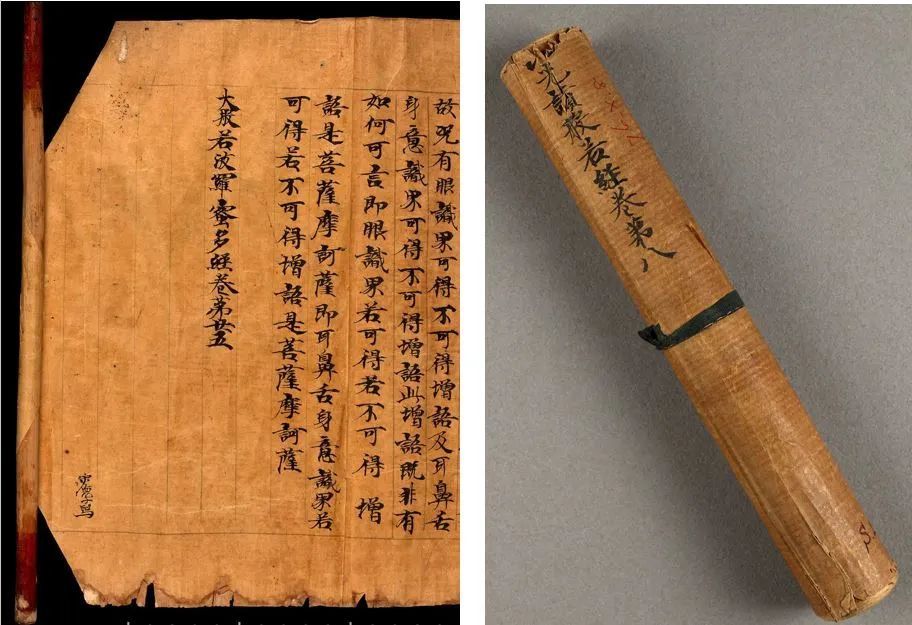 故況有眼識界可得不可得增語及耳鼻舌
身意識界可得不可得增語此增語既非有
如何可言即眼識界若可得若不可得增
語是菩薩摩訶薩即耳鼻舌身意識界若
可得若不可得增語是菩薩摩訶薩
大般若波羅蜜多經卷第廿五
光讚般若經卷第八
S.